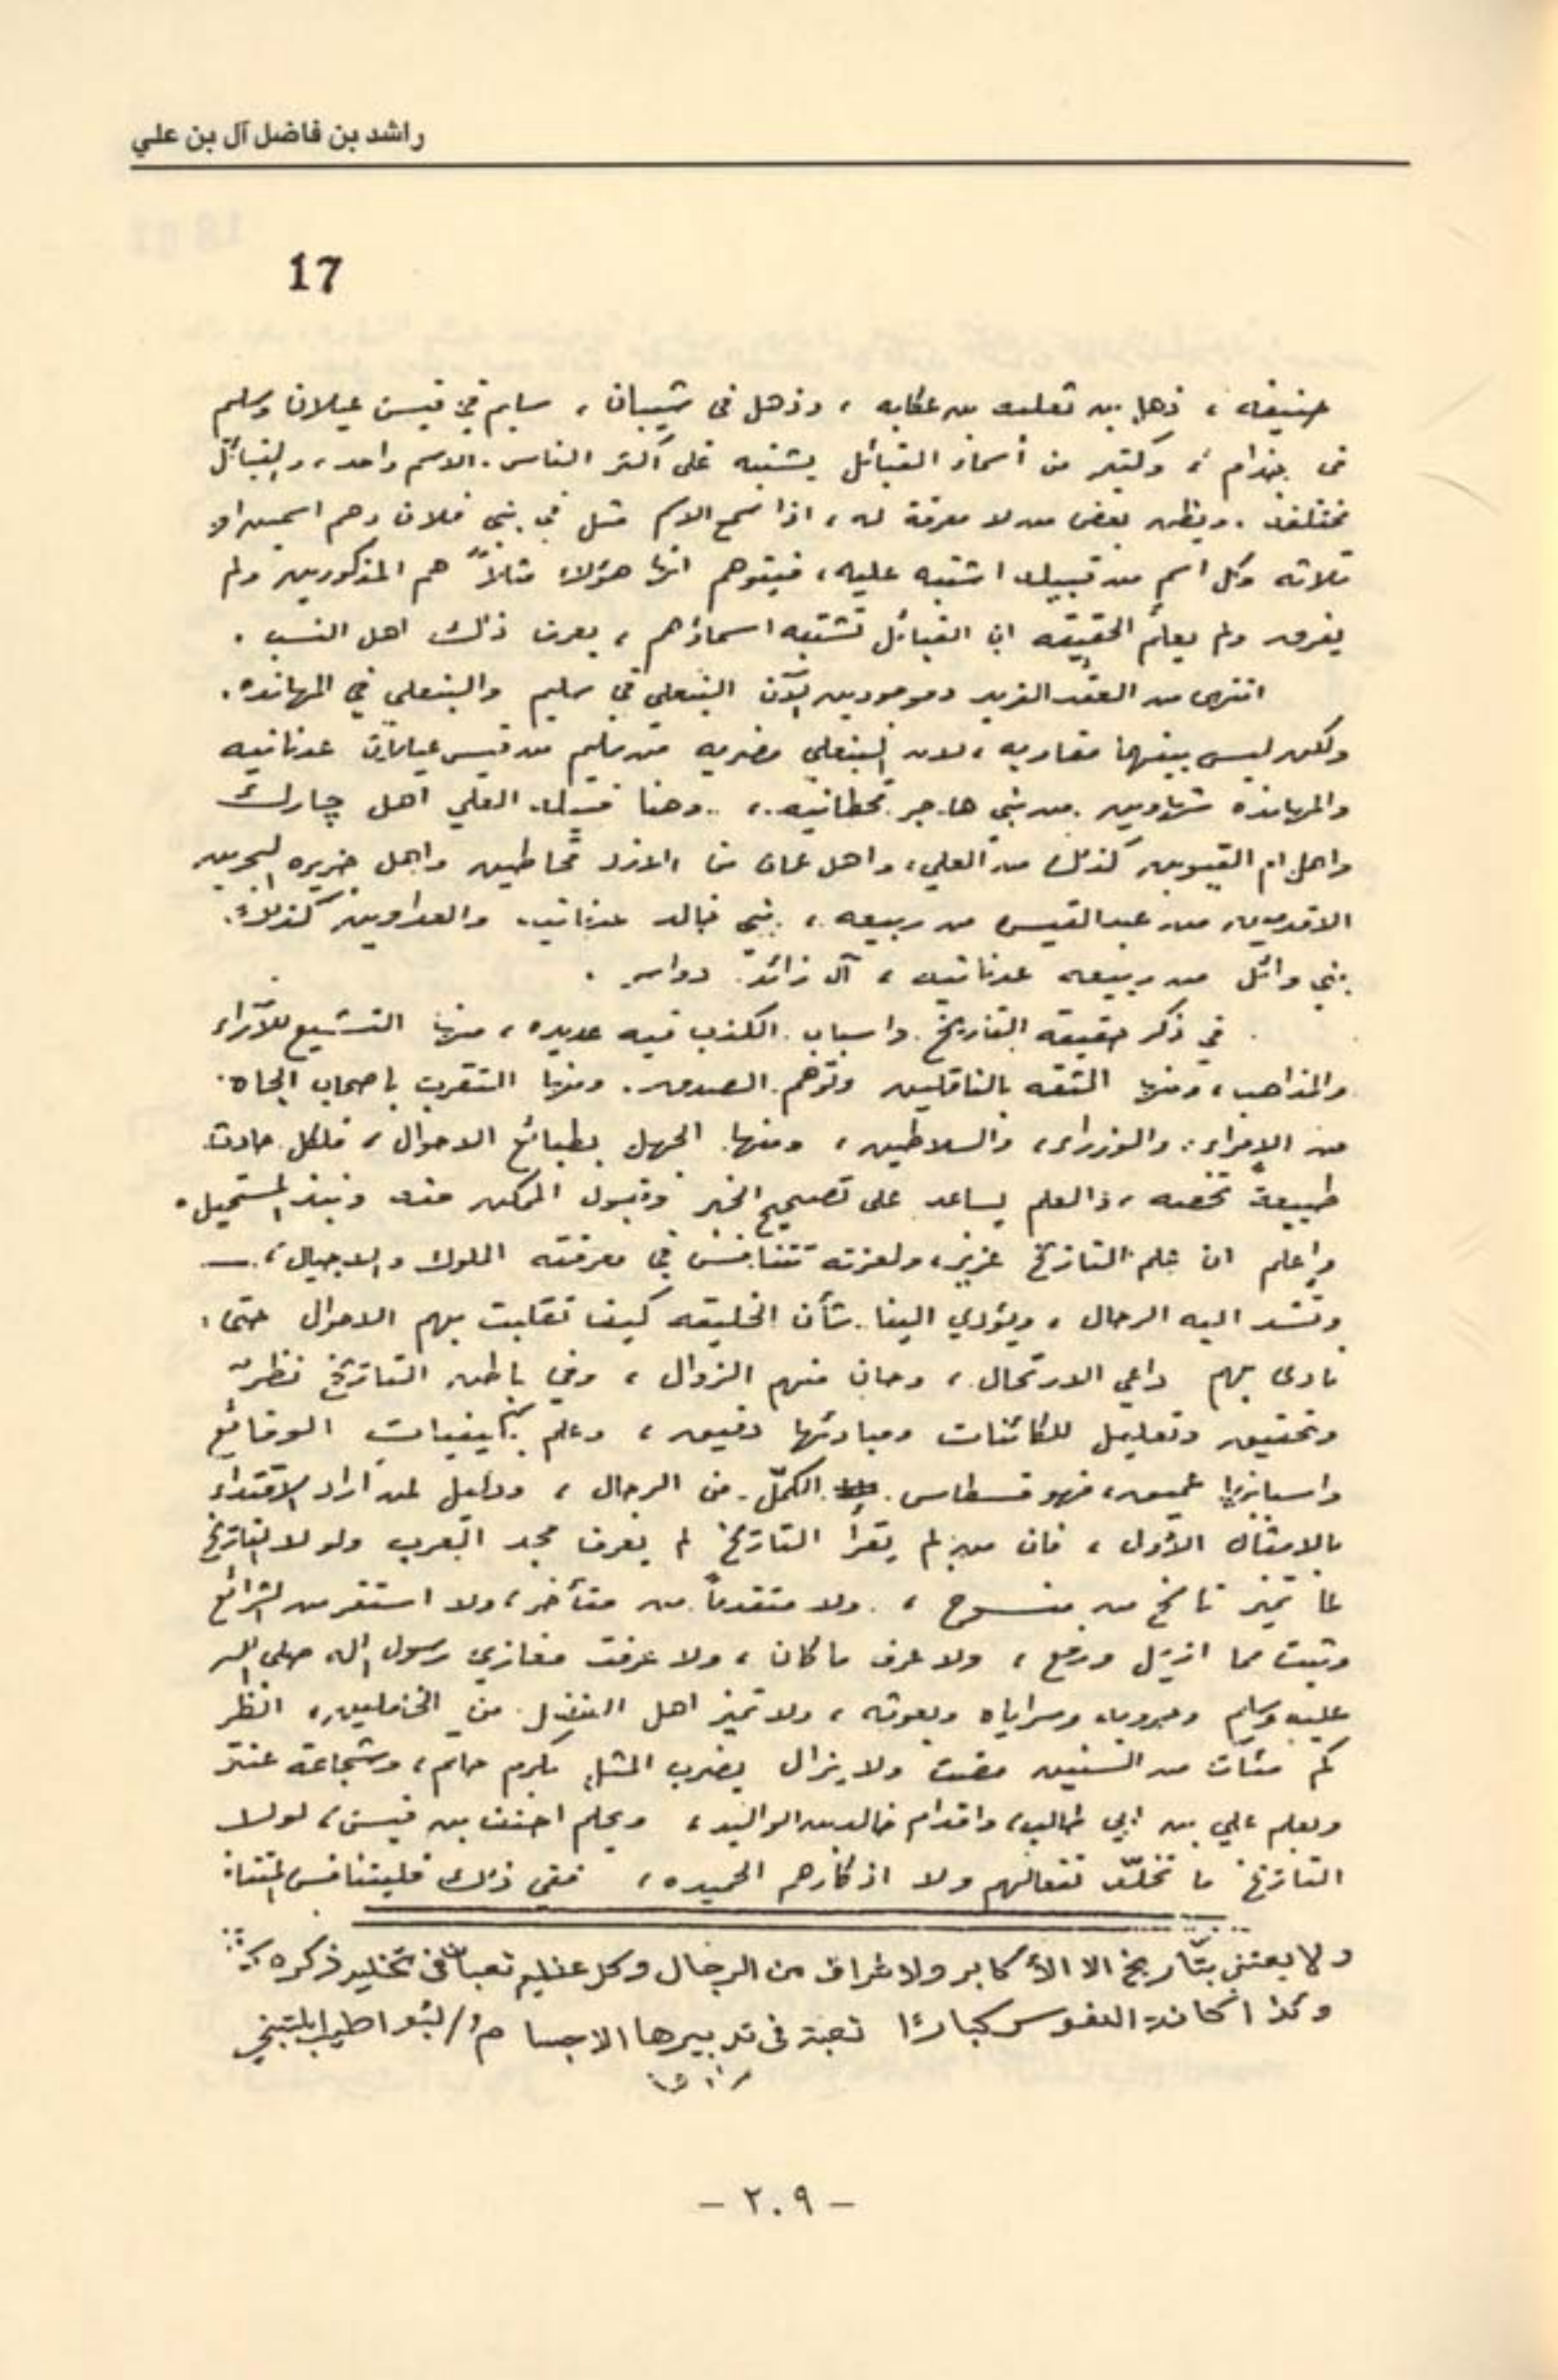 راشد بن فاضل آل بن علي
17
حنيفه ، ذهل بن ثعلبه بن عكابه ، وذهل في شيبان ، سليم في قيس عيلان وسليم
في جذام ، وكثير من أسماء القبائل يشتبه على أكثر الناس . الاسم واحد ، والقبائل
مختلفه . ويظن بعض من لا معرفة له ، اذا سمع الاسم مثل في بني فلان وهم اسمين او
ثلاثه وكل اسم من قبيله اشتبه عليه ، فيتوهم انها هؤلاء مثلاً هم المذكورين ولم
يفرق ولم يعلم الحقيقه ان القبائل تشتبه اسماؤهم ، يعرف ذلك اهل النسب .
انتهى من العقد الفريد وموجودين الآن البنعلي في سليم والبنعلي في المهانده .
ولكن ليس بينهما مقاربه ، لان البنعلي مضريه من سليم من قيس عيلان عدنانيه
والمهانده شهاوين من بني هاجر قحطانيه ، وهنا قبيله العلي اهل چارك
واهل ام القيوين كذلك من العلي ، واهل عمان من الازد قحاطين واهل جزيره البحرين
الاقدمين من عبدالقيس من ربيعه ، بني خالد عدنانيه والعداوين كذلك .
بني وائل من ربيعه عدنانيه ، آل زائد دواسر .
في ذكر حقيقه التاريخ . واسباب الكذب فيه عديده ، منها التشيع للآراء
والمذاهب ، ومنها الثقه بالناقلين وتوهم الصدق . ومنها التقرب باصحاب الجاه .
من الامراء والوزراء ، والسلاطين ، ومنها الجهل بطبائع الاحوال ، فلكل حادث
طبيعة تخصه ، والعلم يساعد على تصحيح الخبر وقبول الممكن منه ونبذ المستحيل .
واعلم ان علم التاريخ عزيز ، ولعزته تتنافس في معرفته الملوك والاجيال ،
وتشد اليه الرحال ، ويؤدي الينا شأن الخليقه كيف تقلبت بهم الاحوال حتى
نادى بهم داعي الارتحال ، وحان منهم الزوال ، وفي باطن التاريخ نظر
وتحقيق وتعليل للكائنات ومبادئها دقيق ، وعلم بكيفيات الوقائع
واسبابها عميق ، فهو قسطاس الكمّل من الرجال ، ودليل لمن أراد الاقتداء
بالامثال الأول ، فان من لم يقرأ التاريخ لم يعرف مجد العرب ولولا التاريخ
لما تميز ناسخ من منسوخ ، ولا متقدماً من متأخر ، ولا استقر من الشرائع
وثبت مما ازيل ورفع ، ولا عرف ما كان ، ولا عرفت مغازي رسول الله صلى الله
عليه وسلم وحروبه وسراياه وبعوثه ، ولا تميز اهل الفضل من الخاملين ، انظر
كم مئات من السنين مضت ولا يزال يضرب المثل بكرم حاتم ، وشجاعة عنتر
وبعلم علي بن ابي طالب ، واقدام خالد بن الوليد ، وبحلم احنف بن قيس ، لولا
التاريخ ما تخلّد فعالهم ولا اذكارهم الحميده ، ففي ذلك فليتنافس
ولا يعتني بتاريخ الا الأكابر ولاشراف من الرجال وكل عظيم تعبان في تخليد ذكره
وكذا انكانة النفوس كبارًا تعبة في تدبيرها الاجسام
- ٢٠٩ -